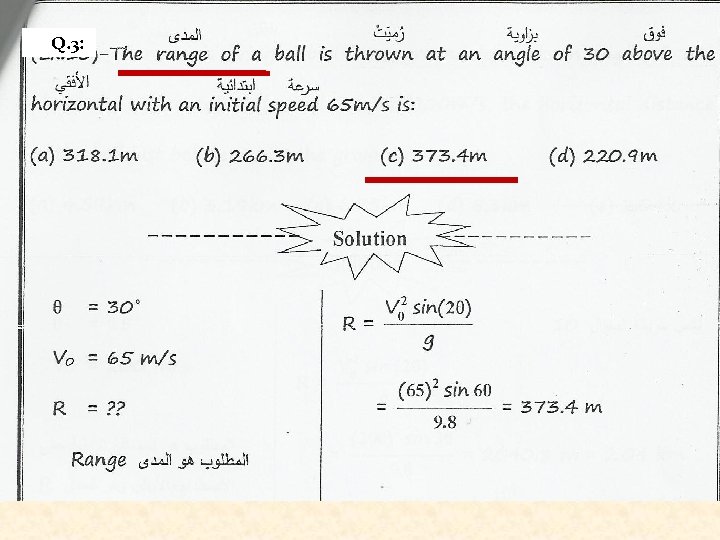 Q.3:
المدى رُميَتْ بزاوية فوق
-The range of a ball is thrown at an angle of 30 above the
الأفقي ابتدائية سرعة
horizontal with an initial speed 65m/s is:
(a) 318.1m (b) 266.3m (c) 373.4m (d) 220.9m
Solution
θ = 30°
V₀ = 65 m/s
R = ??
Range المطلوب هو المدى
R = V₀² sin(2θ) / g
= (65)² sin 60 / 9.8 = 373.4 m